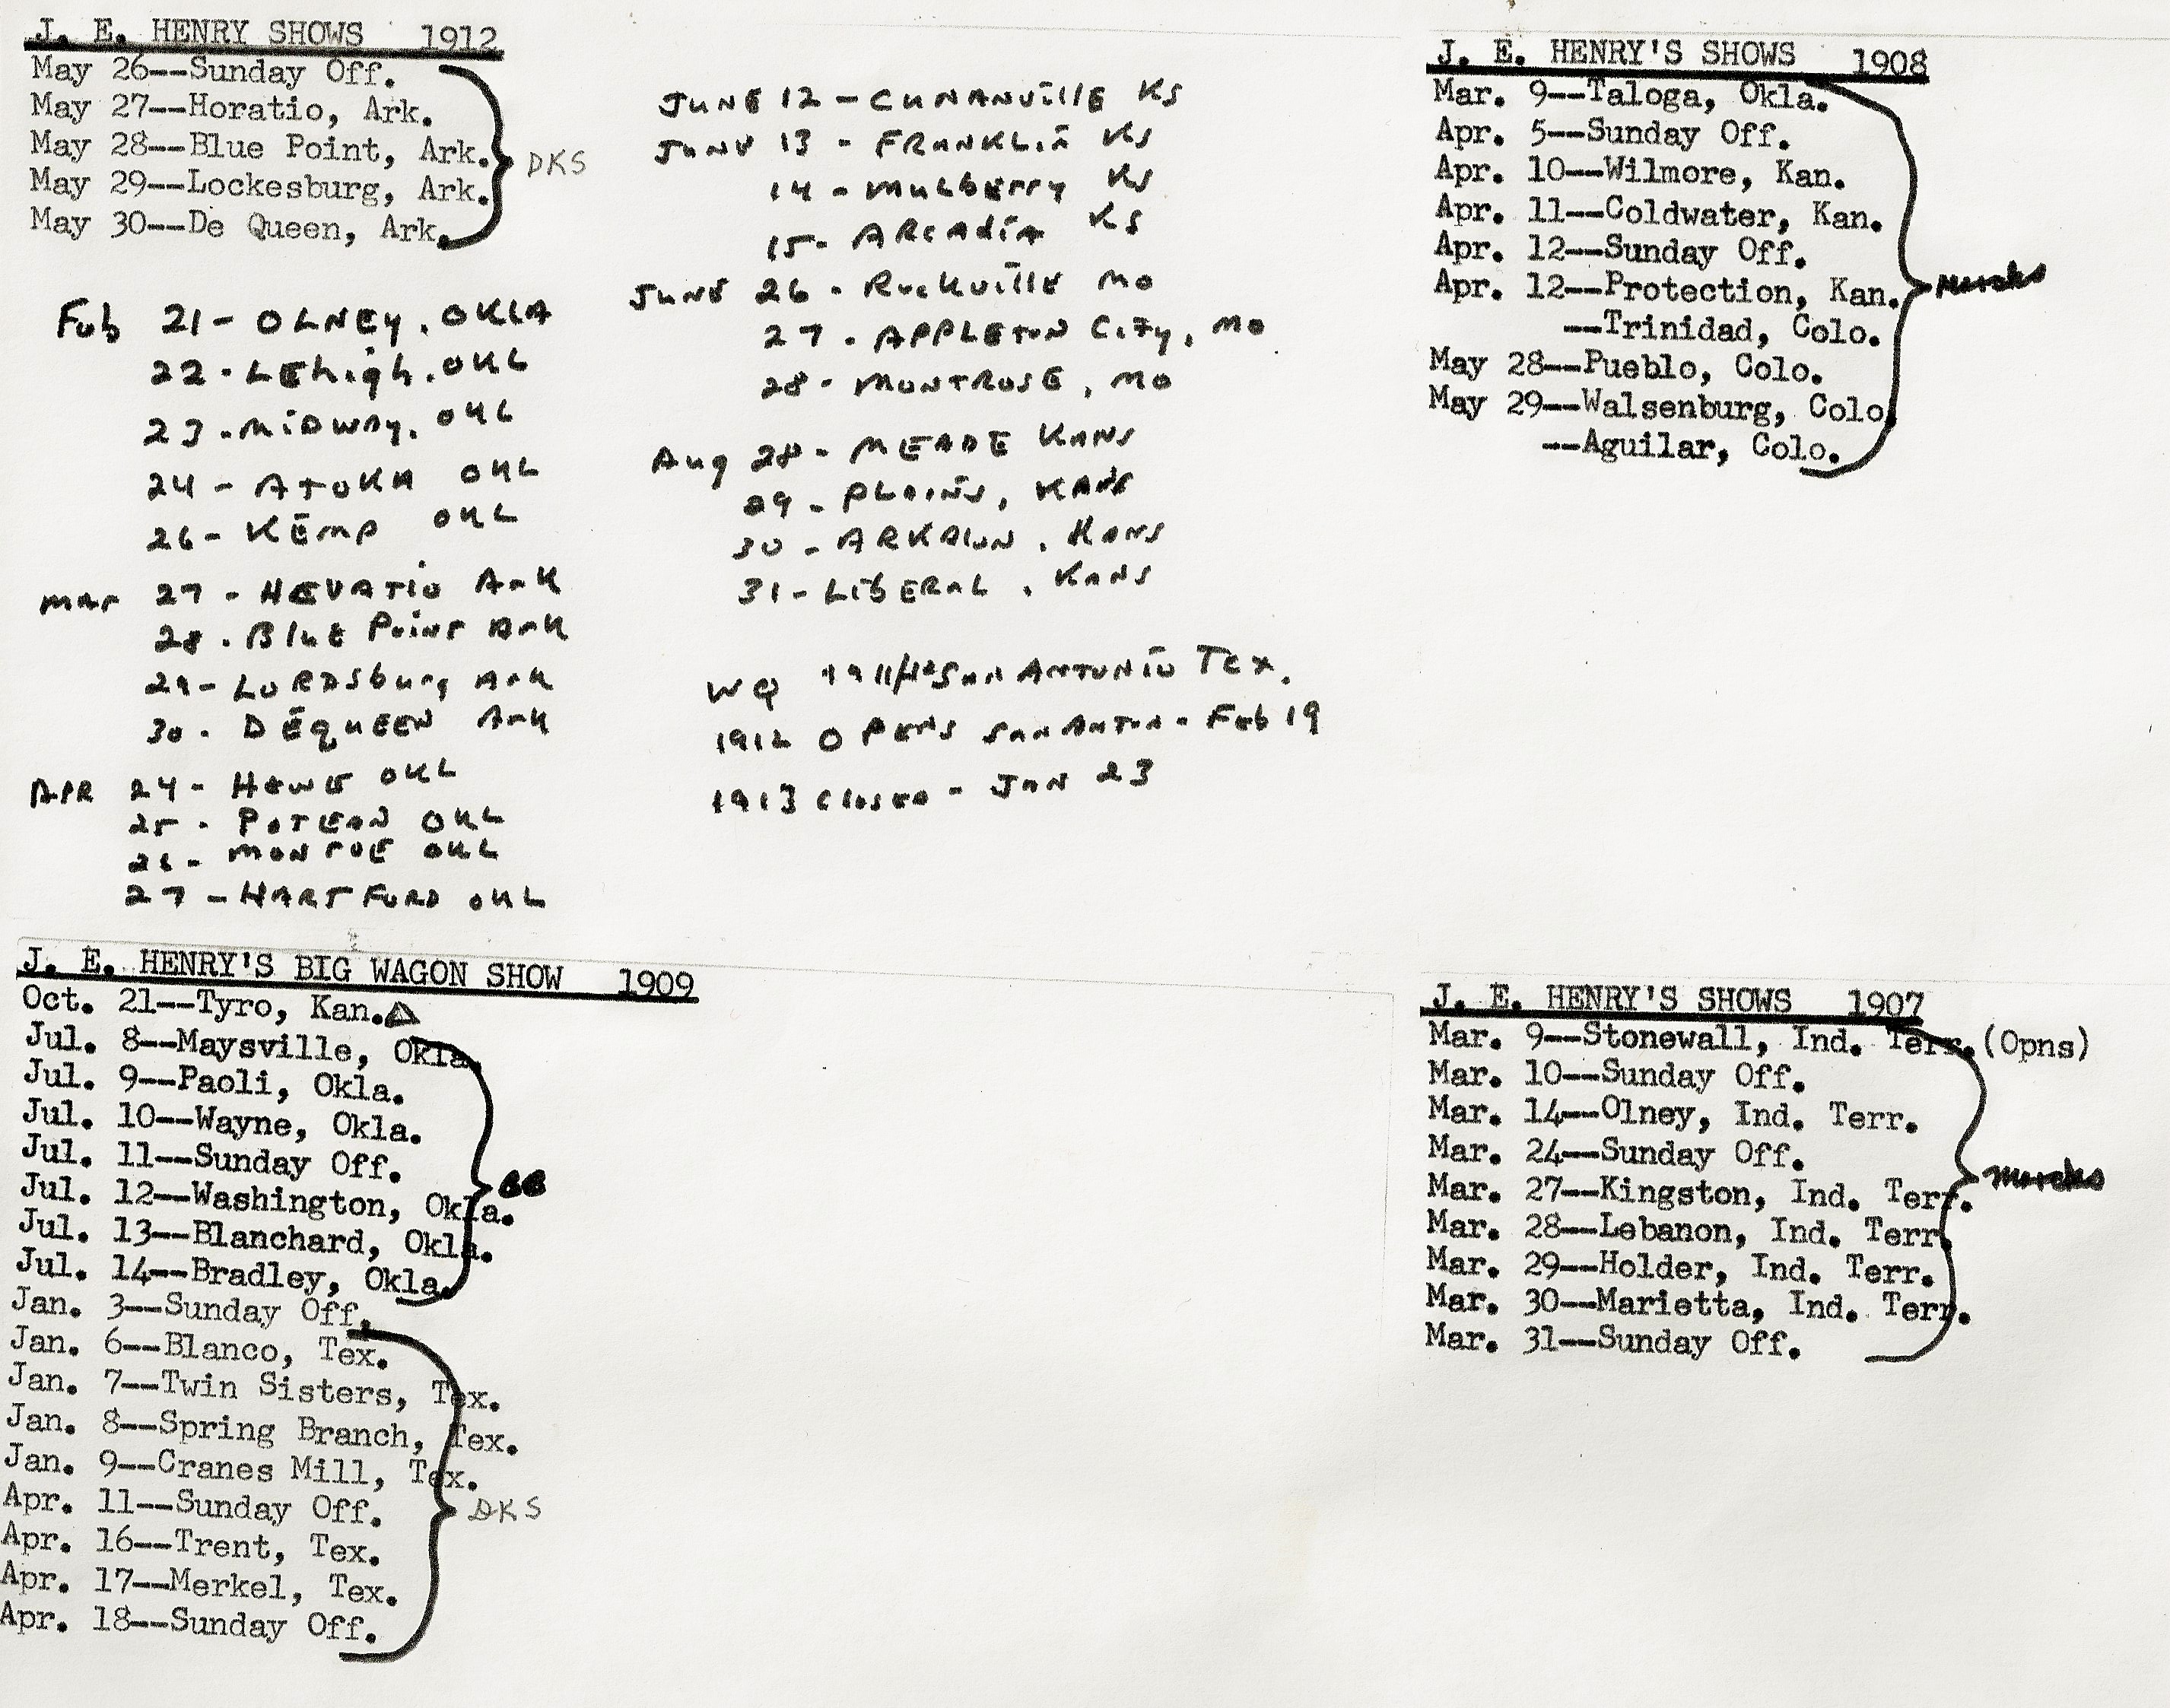 J. E. HENRY SHOWS 1912
May 26--Sunday Off.
May 27--Horatio, Ark.
May 28--Blue Point, Ark.
May 29--Lockesburg, Ark.
May 30--De Queen, Ark.
DKS
Feb 21- OLNEY. OKLA
22-LEhigh. OKL
23-MiDWAY. OKL
24- ATOKA OKL
26- KEMP OKL
MAr 27- HEVATIO ArK
28. BluE Point ArK
29- LORDSburg ArK
30. DEQUEEN ArK
APR 24- HOWE OKL
25- POTEAN OKL
26- MONrOE OKL
27-HARTFORD OKL
JUNE 12- CUNANVillE KS
JUNE 13- FRANKLiN KS
14- MULbErry KS
15- ARCAdiA KS
JUNE 26. RockvillE MO
27. APPLETON CiTy, MO
28- MONTROSE, MO
Aug 28- MEADE KANS
29- PLAiNS, KANS
30- ARKALON. KANS
31-LibERAL. KANS
WQ 1911/12 SAN ANTONiO TEX.
1912 OPENS SAN ANTON- Feb 19
1913 ClosED- JAN 23
J. E. HENRY'S SHOWS 1908
Mar. 9--Taloga, Okla.
Apr. 5--Sunday Off.
Apr. 10--Wilmore, Kan.
Apr. 11--Coldwater, Kan.
Apr. 12--Sunday Off.
Apr. 12--Protection, Kan.
--Trinidad, Colo.
May 28--Pueblo, Colo.
May 29--Walsenburg, Colo.
--Aguilar, Colo.
J. E. HENRY'S BIG WAGON SHOW 1909
Oct. 21--Tyro, Kan.
Jul. 8--Maysville, Okla.
Jul. 9--Paoli, Okla.
Jul. 10--Wayne, Okla.
Jul. 11--Sunday Off.
Jul. 12--Washington, Okla.
Jul. 13--Blanchard, Okla.
Jul. 14--Bradley, Okla.
Jan. 3--Sunday Off.
Jan. 6--Blanco, Tex.
Jan. 7--Twin Sisters, Tex.
Jan. 8--Spring Branch, Tex.
Jan. 9--Cranes Mill, Tex.
Apr. 11--Sunday Off.
Apr. 16--Trent, Tex.
Apr. 17--Merkel, Tex.
Apr. 18--Sunday Off.
DKS
J. E. HENRY'S SHOWS 1907
Mar. 9--Stonewall, Ind. Terr.(Opns)
Mar. 10--Sunday Off.
Mar. 14--Olney, Ind. Terr.
Mar. 24--Sunday Off.
Mar. 27--Kingston, Ind. Terr.
Mar. 28--Lebanon, Ind. Terr.
Mar. 29--Holder, Ind. Terr.
Mar. 30--Marietta, Ind. Terr.
Mar. 31--Sunday Off.